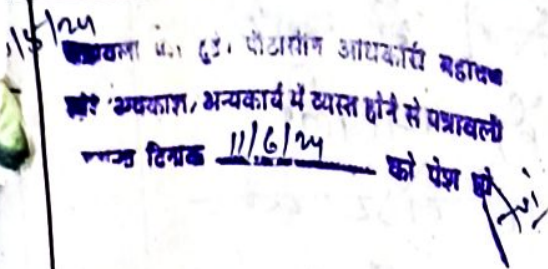 /5/24
पेश हुई। पीठासीन अधिकारी महोदय
अवकाश, अन्यकार्य में व्यस्त होने से पत्रावली
दिनांक 11/6/24 को पेश हो